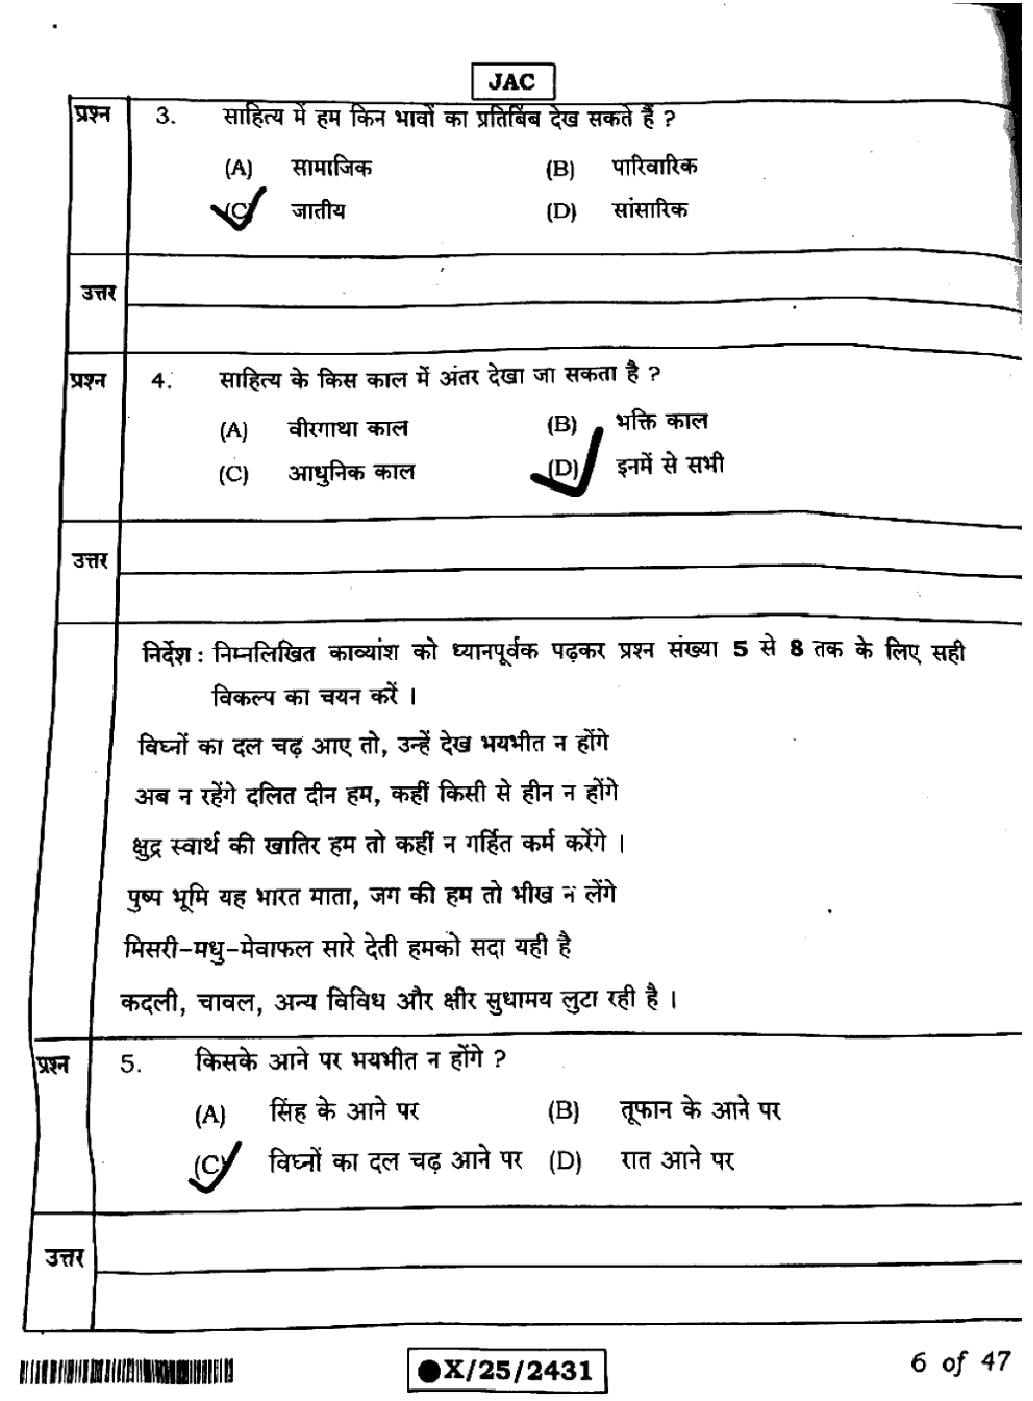 JAC
प्रश्न 3. साहित्य में हम किन भावों का प्रतिबिंब देख सकते हैं ?
(A) सामाजिक (B) पारिवारिक
(C) जातीय (D) सांसारिक
उत्तर
प्रश्न 4. साहित्य के किस काल में अंतर देखा जा सकता है ?
(A) वीरगाथा काल (B) भक्ति काल
(C) आधुनिक काल (D) इनमें से सभी
उत्तर
निर्देश : निम्नलिखित काव्यांश को ध्यानपूर्वक पढ़कर प्रश्न संख्या 5 से 8 तक के लिए सही
विकल्प का चयन करें ।
विघ्नों का दल चढ़ आए तो, उन्हें देख भयभीत न होंगे
अब न रहेंगे दलित दीन हम, कहीं किसी से हीन न होंगे
क्षुद्र स्वार्थ की खातिर हम तो कहीं न गर्हित कर्म करेंगे ।
पुष्प भूमि यह भारत माता, जग की हम तो भीख न लेंगे
मिसरी-मधु-मेवाफल सारे देती हमको सदा यही है
कदली, चावल, अन्य विविध और क्षीर सुधामय लुटा रही है ।
प्रश्न 5. किसके आने पर भयभीत न होंगे ?
(A) सिंह के आने पर (B) तूफान के आने पर
(C) विघ्नों का दल चढ़ आने पर (D) रात आने पर
उत्तर
X/25/2431
6 of 47